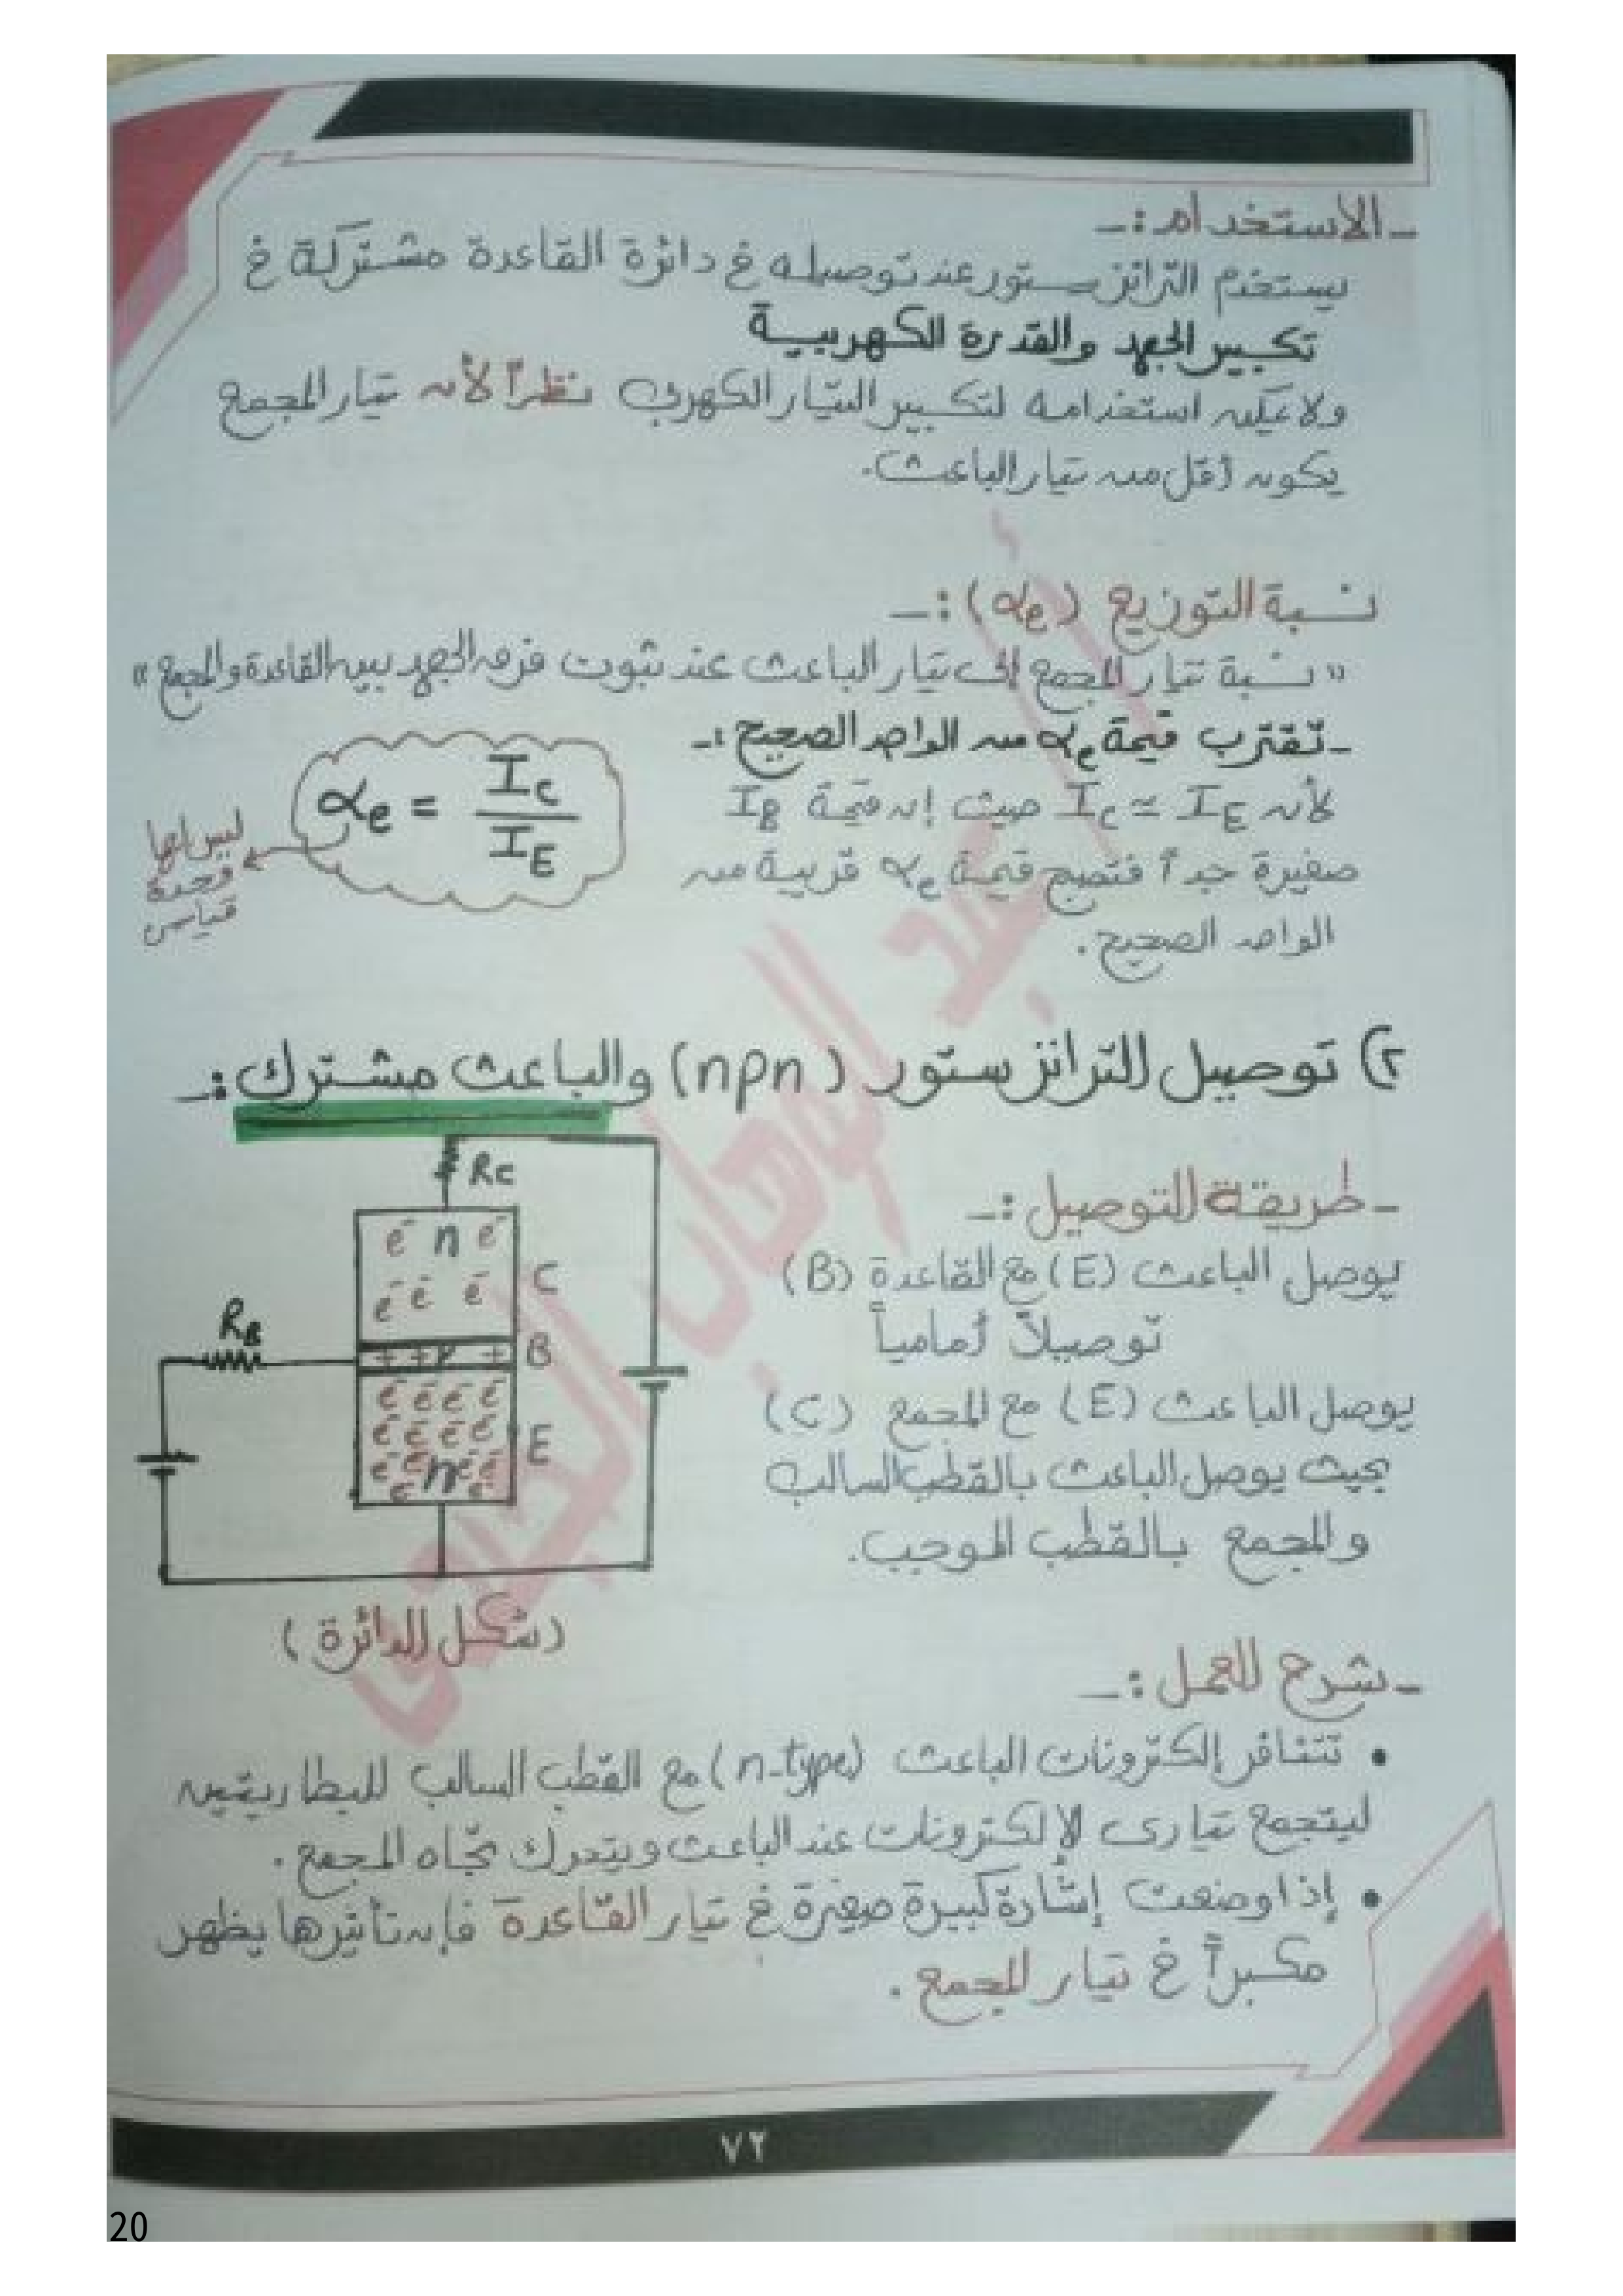 ـ الاستخدام :ـ
يستخدم الترانزستور عند توصيله في دائرة القاعدة مشتركة في
تكبير الجهد والقدرة الكهربية
ولا يمكن استخدامه لتكبير التيار الكهربي نظراً لأن تيار المجمع
يكون أقل من تيار الباعث.
نسبة التوزيع (αe) :ـ
" نسبة تيار المجمع إلى تيار الباعث عند ثبوت فرق الجهد بين القاعدة والمجمع "
ـ تقترب قيمة αe من الواحد الصحيح :ـ
لأن IC ≃ IE حيث إن قيمة IB
صغيرة جداً فتصبح قيمة αe قريبة من
الواحد الصحيح .
αe = IC / IE
ليس لها
وحدة
قياس
٢) توصيل الترانزستور (npn) والباعث مشترك :ـ
ـ طريقة التوصيل :ـ
يوصل الباعث (E) مع القاعدة (B)
توصيلاً أمامياً
يوصل الباعث (E) مع المجمع (C)
بحيث يوصل الباعث بالقطب السالب
والمجمع بالقطب الموجب.
RC
e⁻ n e⁻
e⁻ e⁻ e⁻
C
RB
+ + P +
B
e⁻ e⁻ e⁻ e⁻
e⁻ e⁻ e⁻ e⁻
E
e⁻ e⁻ n e⁻ e⁻
e⁻ e⁻
(شكل الدائرة)
ـ شرح العمل :ـ
• تتنافر إلكترونات الباعث (n-type) مع القطب السالب للبطاريتين
ليتجمع تياري الإلكترونات عند الباعث ويتحرك تجاه المجمع .
• إذا وضعت إشارة كبيرة صغيرة في تيار القاعدة فإن تأثيرها يظهر
مكبراً في تيار المجمع .
٧٢
20